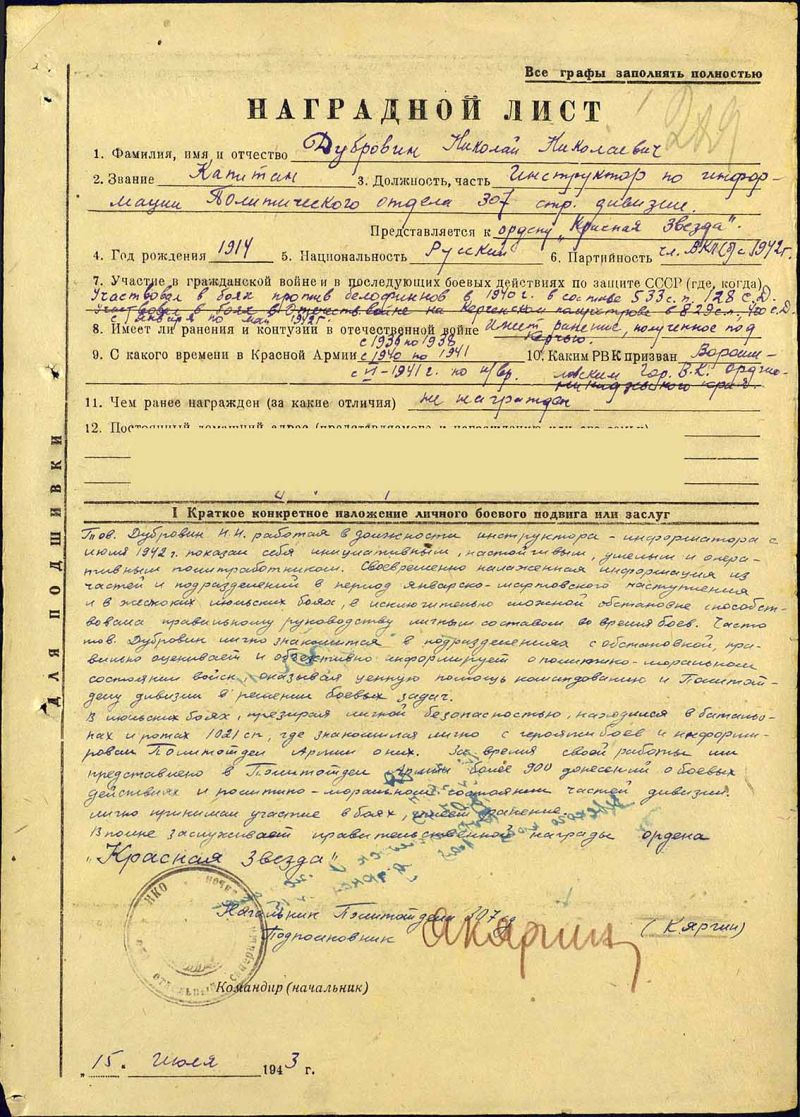 Все графы заполнять полностью
НАГРАДНОЙ ЛИСТ
1. Фамилия, имя и отчество Дубровин Николай Николаевич
2. Звание Капитан 3. Должность, часть Инструктор по инфор-
мации Политического отдела 307 стр. дивизии.
Представляется к ордену "Красная Звезда".
4. Год рождения 1914 5. Национальность Русский 6. Партийность чл. ВКП(б) с 1942 г.
7. Участие в гражданской войне и в последующих боевых действиях по защите СССР (где, когда)
Участвовал в боях против белофиннов в 1940 г. в составе 533 с.п. 128 с.д.
Участвовал в боях в Отечеств. войне на Керченском полуострове в 829 сп, 400 с.д.
с января по май 1942 г.
8. Имеет ли ранения и контузии в отечественной войне Имеет ранение, полученное под
Керчью.
с 1936 по 1938
9. С какого времени в Красной Армии с 1940 по 1941 10. Каким РВК призван Вороши-
с VI-1941 г. по н/вр. ловским Гор. В.К. Орджо-
никидзевского края.
11. Чем ранее награжден (за какие отличия) не награжден
12.
I Краткое конкретное изложение личного боевого подвига или заслуг
Тов. Дубровин Н.Н. работая в должности инструктора-информатора с
июля 1942 г. показал себя инициативным, настойчивым, умелым и опера-
тивным политработником. Своевременно налаженная информация из
частей и подразделений в период январско-мартовского наступления
и в жестоких июльских боях, в исключительно сложной обстановке способст-
вовала правильному руководству личным составом во время боев. Часто
тов. Дубровин лично знакомится в подразделениях с обстановкой, пра-
вильно оценивает и объективно информирует о политико-моральном
состоянии войск, оказывая ценную помощь командованию и Политот-
делу дивизии в решении боевых задач.
В июльских боях, презирая личной безопасностью, находился в батальо-
нах и ротах 1021 сп, где знакомился лично с героями боев и информи-
ровал Политотдел Армии о них. За время своей работы им
представлено в Политотдел Армии более 900 донесений о боевых
действиях и политико-моральном состоянии частей дивизии.
Лично принимал участие в боях, имеет ранение.
Вполне заслуживает правительственной награды ордена
"Красная Звезда"
Начальник Политотдела 307 сд
Подполковник (Кяргин)
НКО
Командир (начальник)
"15" Июля 1943 г.
ДЛЯ ПОДШИВКИ